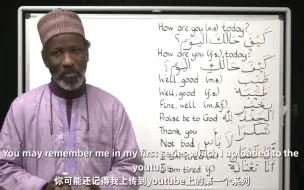 How are you (m.s) today?
كَيْفَ حَالُكَ الْيَوْمَ؟
How are you (f.s), today?
كَيْفَ حَالُكِ الْيَوْمَ؟
Well, good (m.s)
Well, good (f.s)
Fine, well (m.&f)
بِخَيْر
Praise be to God
Thank you
شُكْرًا
Not bad
tired (m.s)
tired (f.s)
You may remember me in my first series which I uploaded to the
youtube
你可能还记得我上传到youtube上的第一个系列